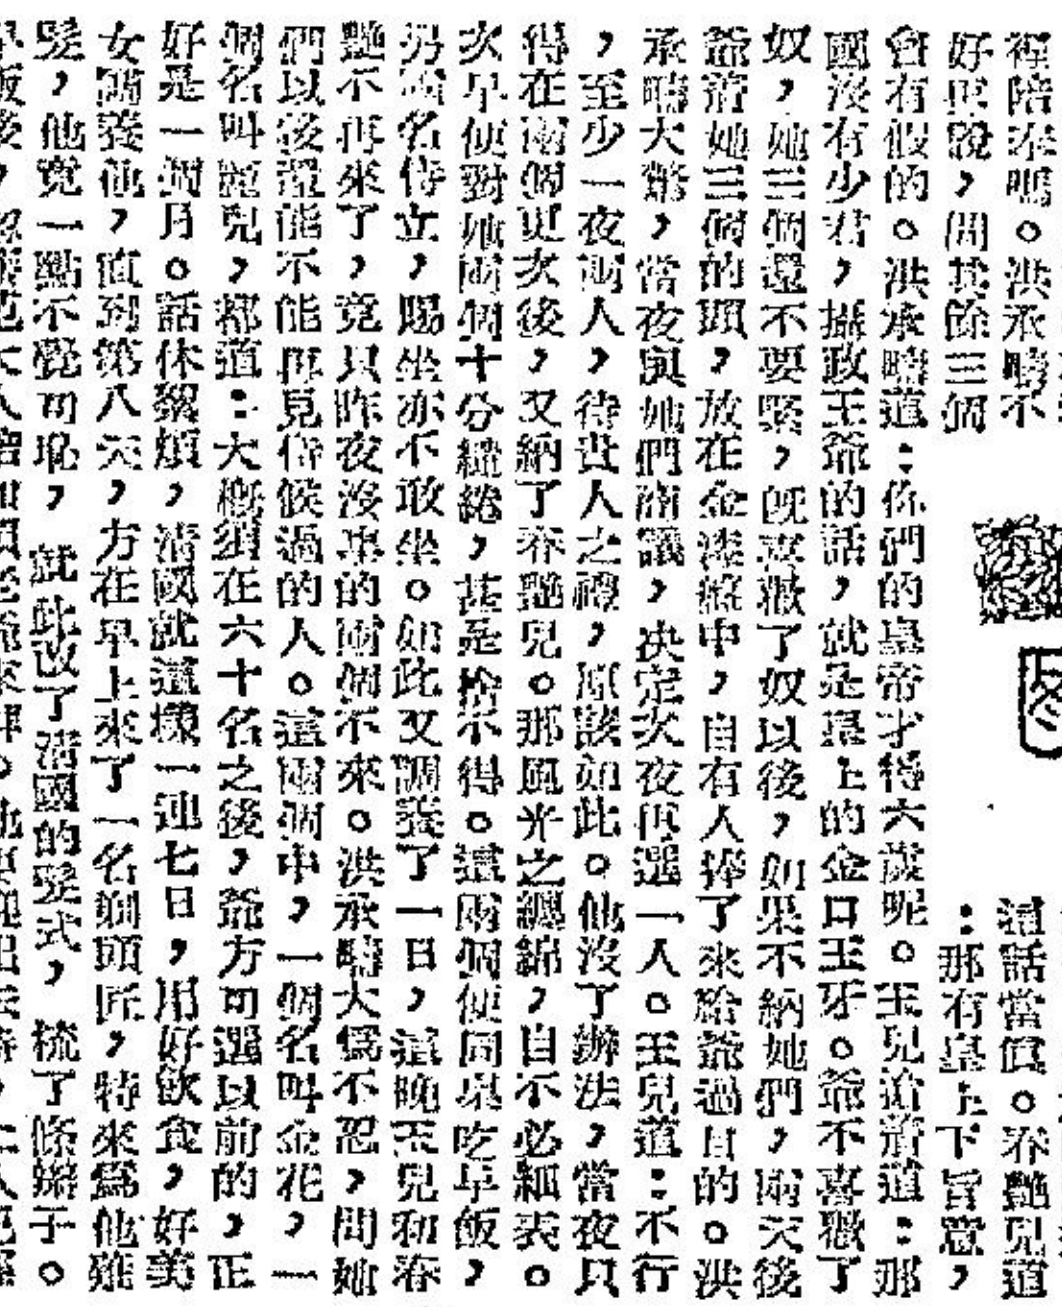 裡陪奉嗎。洪承疇不
這話當眞。春艷兒道
好再說，問其餘三個
：那有皇上下旨意，
會有假的。洪承疇道：你們的皇帝才得六歲呢。玉兒道：那
國沒有少君，攝政王爺的話，就是皇上的金口玉牙。爺不喜歡了
奴，她三個還不要緊，旣喜歡了奴以後，如果不納她們，兩天後
爺看她三個的頭，放在金漆盤中，自有人捧了來給爺過目的。洪
承疇大驚，當夜與她們商議，決定次夜再選一人。玉兒道：不行
，至少一夜兩人，待貴人之禮，原該如此。他沒了辦法，當夜只
得在兩個更次後，又納了春艷兒。那風光之纏綿，自不必細表。
次早便對她兩個十分繾綣，甚是捨不得。這兩個便同桌吃早飯，
另兩名侍立，賜坐亦不敢坐。如此又調養了一日，這晚玉兒和春
艷不再來了，竟只昨夜沒畢的兩個不來。洪承疇大爲不忍，問她
們以後還能不能再見侍候過的人。這兩個中，一個名叫金花，一
個名叫麗兒，都道：大概須在六十名之後，爺方可選以前的，正
好是一個月。話休絮煩，清國就這樣一連七日，用好飲食，好美
女調養他，直到第八天，方在早上來了一名剃頭匠，特來爲他薙
髮，他竟一點不覺可恥，就此改了清國的髮式，梳了條辮子。